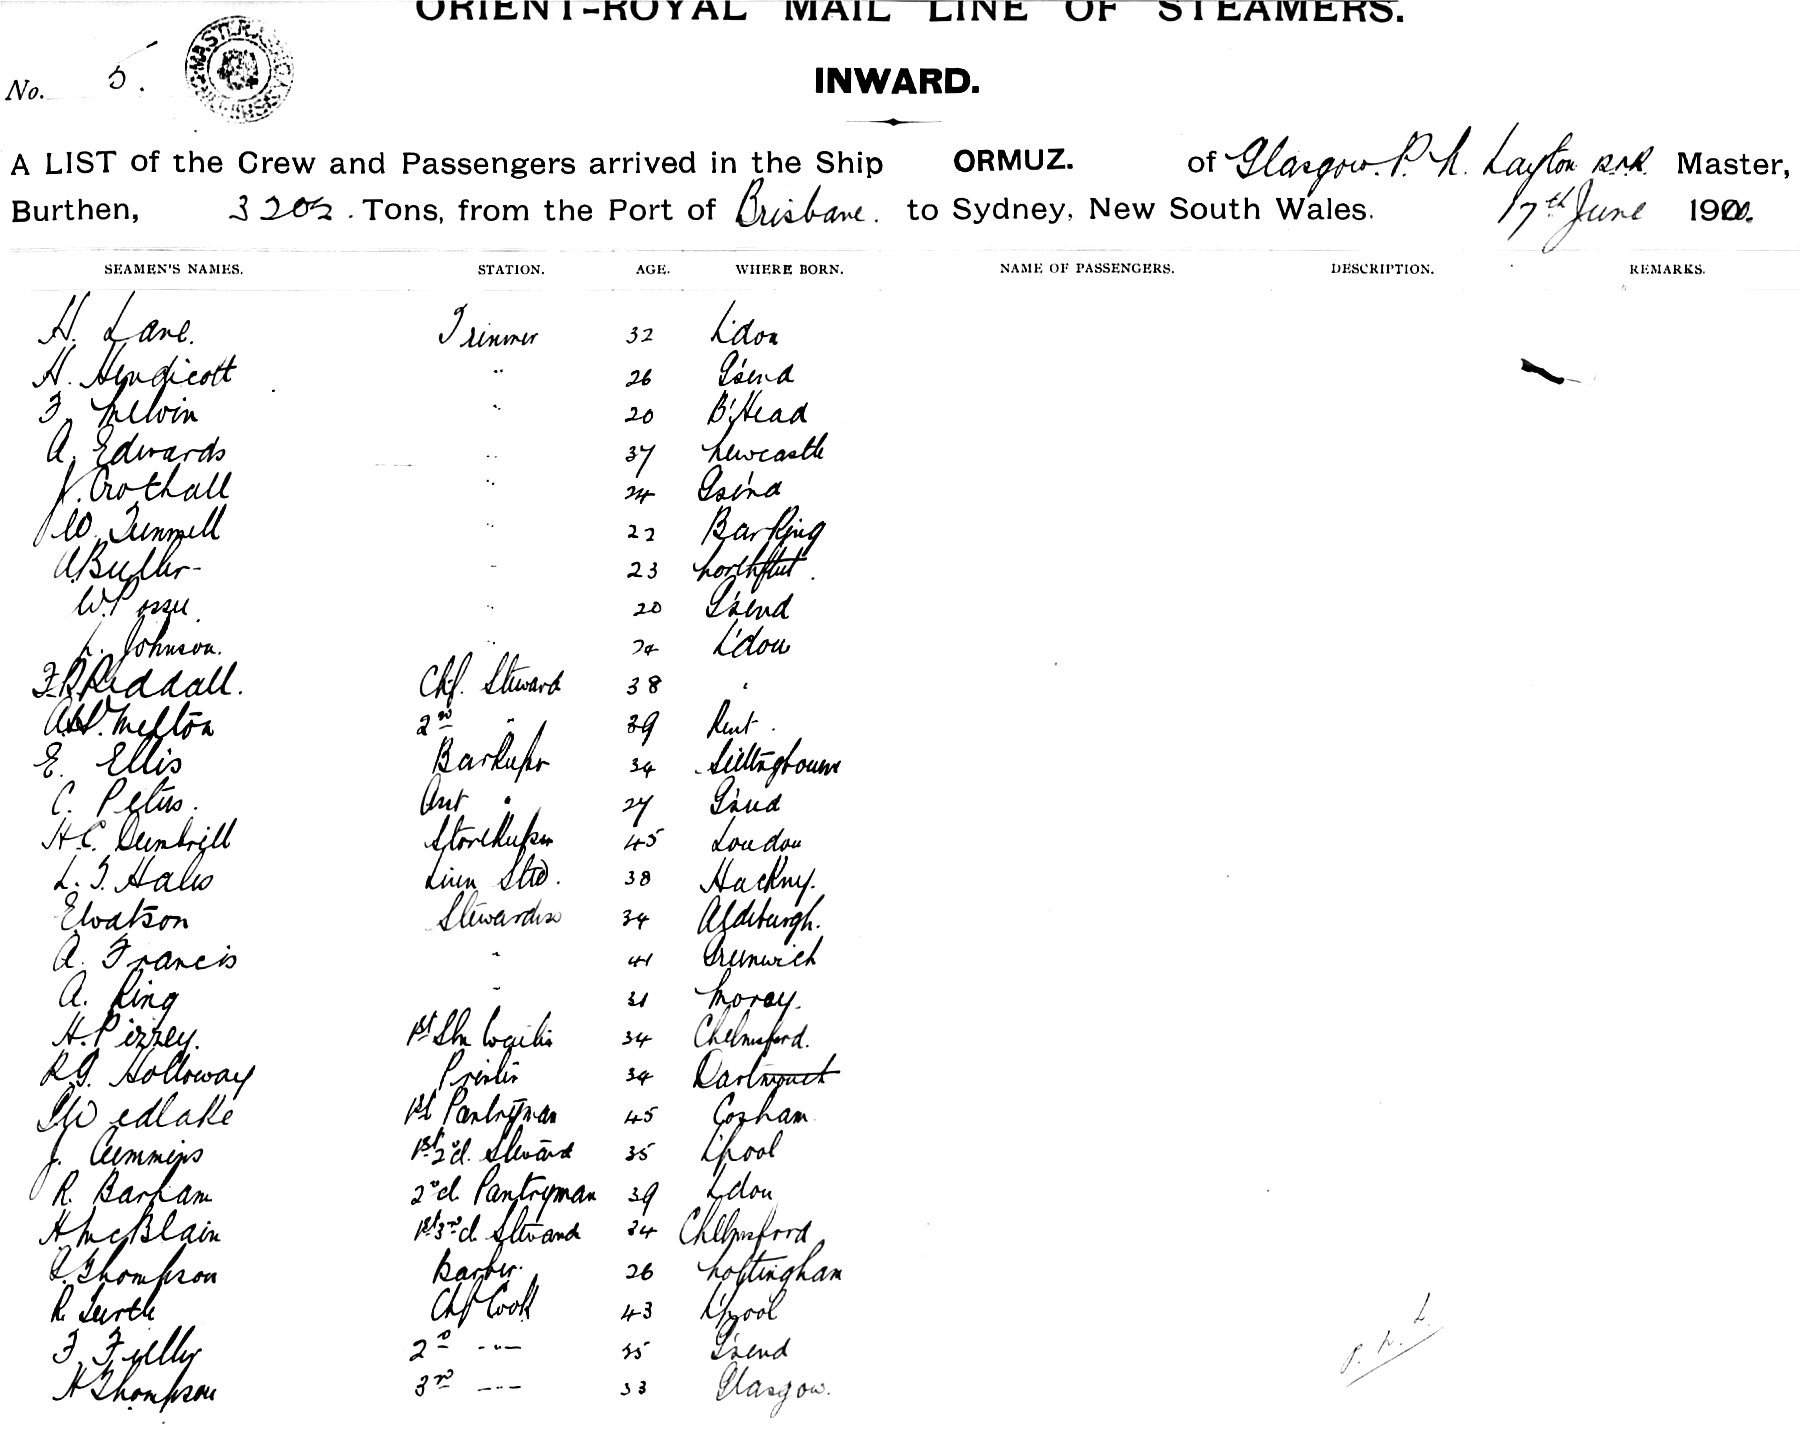 ORIENT-ROYAL MAIL LINE OF STEAMERS.
No. 5.
INWARD.
A LIST of the Crew and Passengers arrived in the Ship ORMUZ. of Glasgow. P. N. Layton R.N.R. Master,
Burthen, 3202. Tons, from the Port of Brisbane. to Sydney, New South Wales. 17th June 1900.
SEAMEN'S NAMES. STATION. AGE. WHERE BORN. NAME OF PASSENGERS. DESCRIPTION. REMARKS.
H. Lane. Trimmer 32 L'don
H. Hendicott " 26 G'send
F. Melvin " 20 B'Head
A. Edwards " 37 Newcastle
J. Crothall " 24 G'send
W. Tunmell " 22 Barking
A Butler " 23 Northfleet.
W. " 20 G'send
L. Johnson. " 24 L'don
F.R. Riddall. Chf. Steward 38 "
Melton 2nd " 39 Kent.
E. Ellis Barkeeper 34 Sittingbourne
C. Peters. Asst " 27 G'send
H.C. Dumbrill Storekeeper 45 London
L. F. Hales Linen Stwd. 38 Hackney.
E Watson Stewardess 34 Aldeburgh.
A. Francis " 41 Greenwich
A. King " 31
H. Pizzey. 1st Sln Waiter 34 Chelmsford.
R.G. Holloway Printer 34 Dartmouth
Wedlake 1st Pantryman 45 Cosham
J. Cummins 1st 2d. Steward 35 L'pool
R. Barham 2nd. Pantryman 39 L'don
H McBlain 1st 3rd. Steward 34 Chelmsford
Thompson Barber. 26 Nottingham
R. Turtle Chf Cook 43 L'pool
F. Fuller 2nd -"- 35 G'send
H Thompson 3rd -"- 33 Glasgow.
P. N. L.